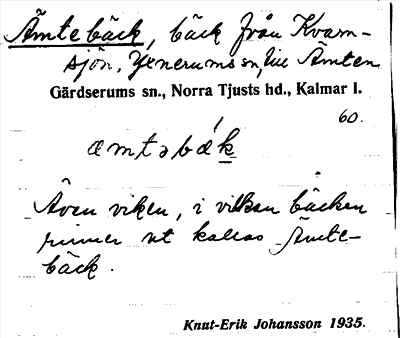 Ämtebäck, bäck från Kvarn-
sjön, Yxnerums sn, till Ämten
Gärdserums sn., Norra Tjusts hd., Kalmar l.
60.
æmtəbǽk
Även viken, i vilken bäcken
rinner ut kallas Ämte-
bäck.
Knut-Erik Johansson 1935.